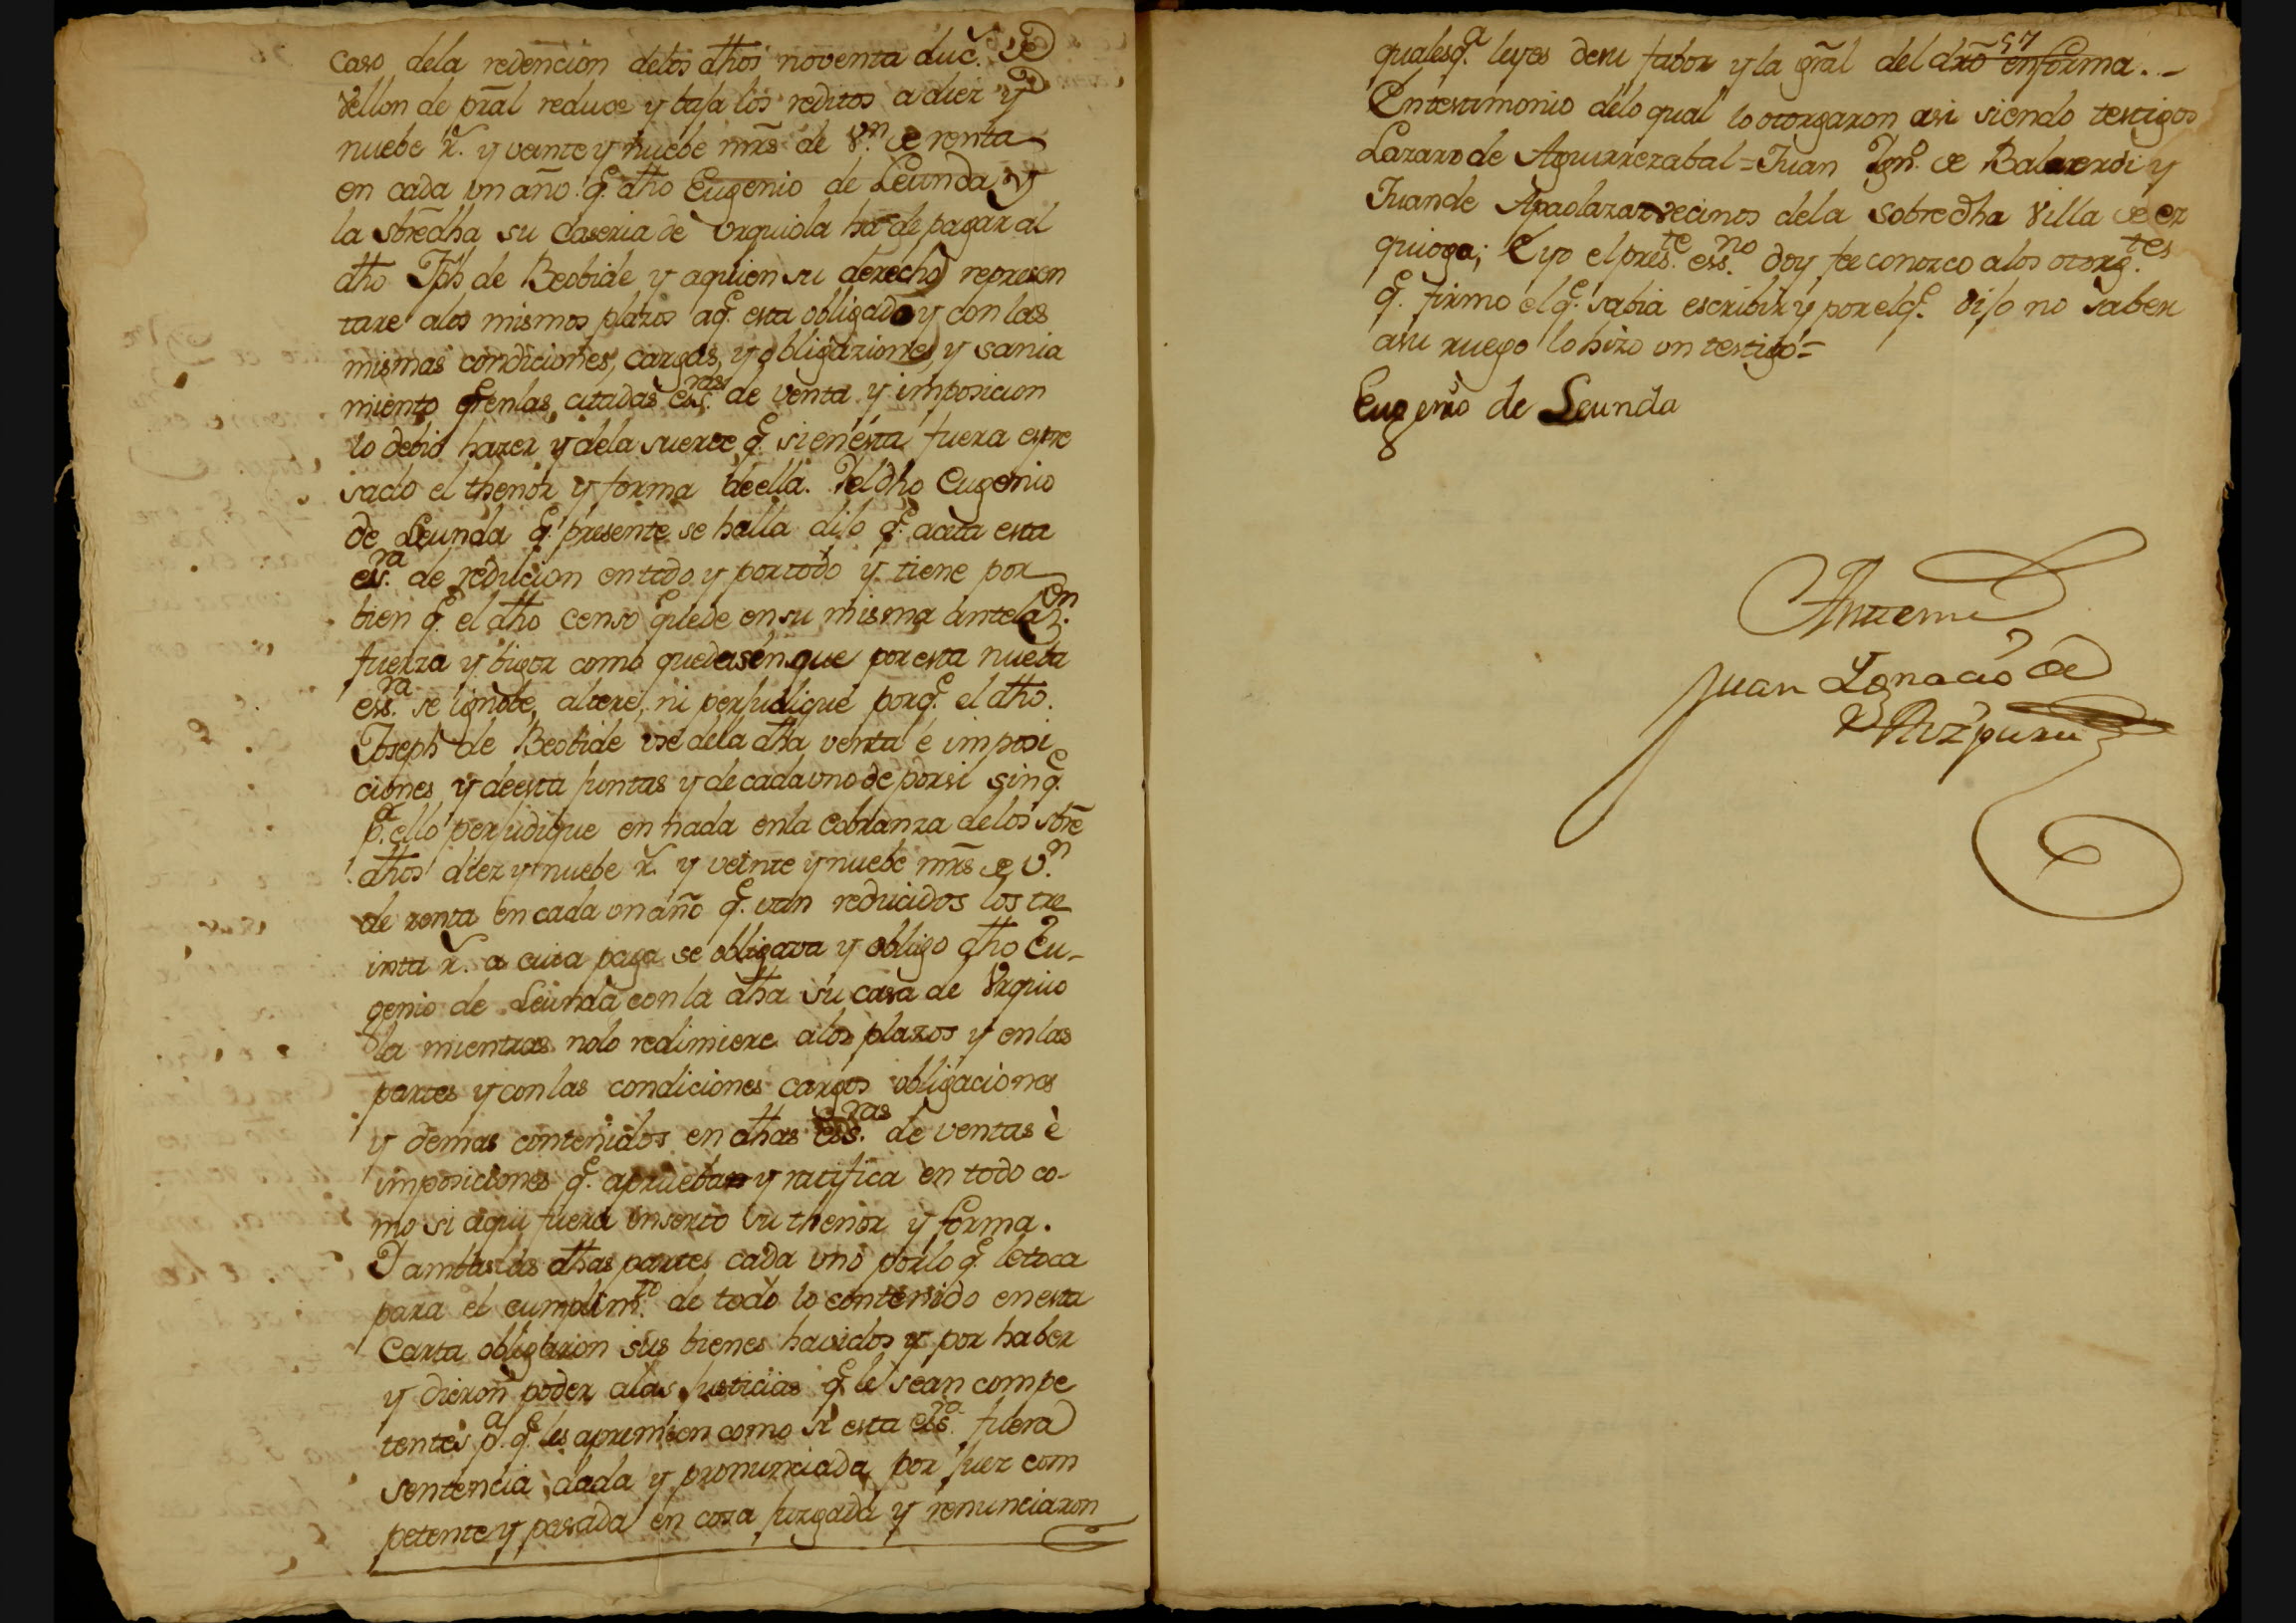 caso dela redencion delos dhos noventa duc.s de
Vellon de pral reduce y baja los reditos a diez y
nuebe rs. y veinte y nuebe mrs de Vn. de renta
en cada un año q. dho Eugenio de Leunda y
la sbredha su caseria de Urquiola ha de pagar al
dho Jph de Beobide y aquien su derecho represen
tare alos mismos plazos aq. esta obligado y con las
mismas condiciones, cargas, y obligaziones y sania
miento q. en las citadas ess.ras de venta y imposicion
lo debio hazer y dela suerte q. si en esta fuera espre
sado el thenor y forma de ella. Y el dho Eugenio
de Leunda q. presente se halla dijo q. aceta esta
ess.ra de reducion en todo y por todo y tiene por
bien q. el dho censo quede en su misma antelaz.on
fuerza y bigor como queda sin que por esta nueba
ess.ra se ignobe, altere, ni perjudique porq. el dho.
Joseph de Beobide use dela dha venta e imposi
ciones y de esta juntas y de cada uno de por si sin q.
p.a ello perjudique en nada en la cobranza delos sbre
dhos diez y nuebe rs. y veinte y nuebe mrs de Vn.
de renta en cada un año q. van reducidos los tre
inta rs. a cuia paga se obligava y obligo dho Eu-
genio de Leunda con la dha su casa de Urquio
la mientras nolo redimiere alos plazos y en las
partes y con las condiciones cargos obligaciones
y demas contenidos en dhas ess.ras de ventas è
imposiciones q. aprueba y ratifica en todo co-
mo si aqui fuera inserto su thenor y forma.
Y ambas las dhas partes cada uno por lo q. le toca
para el cumplim.to de todo lo contenido en esta
Carta obligaron sus bienes havidos y por haber
y dieron poder alas justicias q. le sean compe
tentes p.a q. les apremien como si esta ess.ra fuera
sentencia dada y pronunciada por juez com
petente y pasada en cosa juzgada y renunciaron
57
qualesq.a leyes de su fabor y la gral del dro en forma. -
En testimonio delo qual lo otorgaron asi siendo testigos
Lazaro de Aguirrezabal = Juan Ign.o de Balaerdi y
Juan de Apaolaza vecinos dela sobredha Villa de Ez
quioga; E yo el pres.te ess.no doy fee conozco alos otorg.tes
q. firmo el q. sabia escribir y por el q. dijo no saber
a su ruego lo hizo un testigo =
Eugenio de Leunda
Antemi
Juan Ygnacio de
Aizpuru